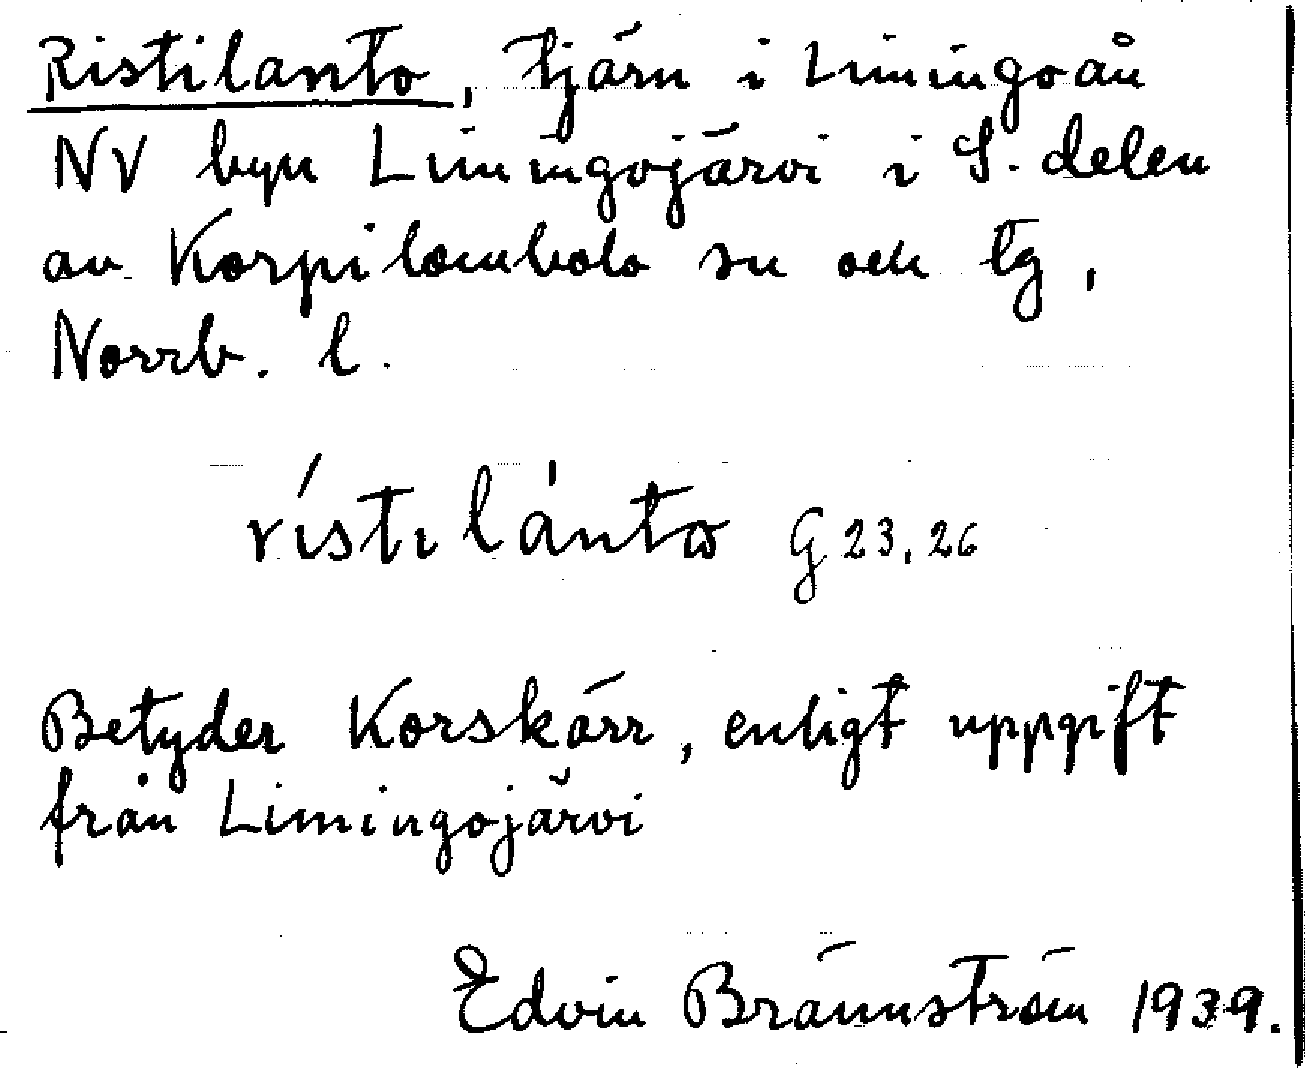 Ristilanto, tjärn i Limingoån
NV byn Limingojärvi i S. delen
av Korpilombolo sn och tg,
Norrb. l.
rístilánto G 23, 26
Betyder Korskärr, enligt uppgift
från Limingojärvi
Edvin Brännström 1939.